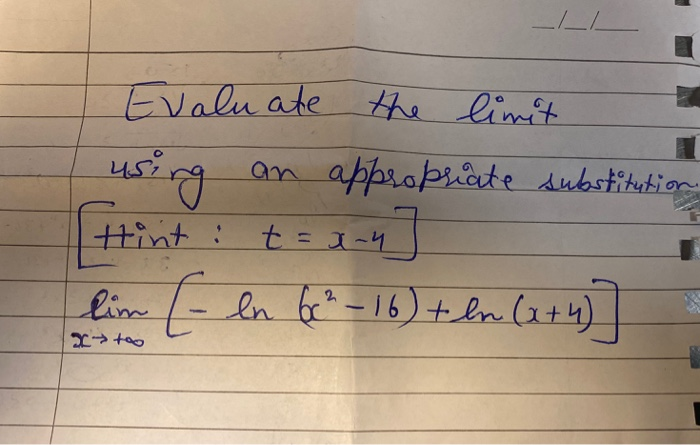 _/_/_
Evaluate the limit
using an appropriate substitution.
[Hint : t = x-4]
lim [- ln (x² - 16) + ln (x+4)]
x→+∞